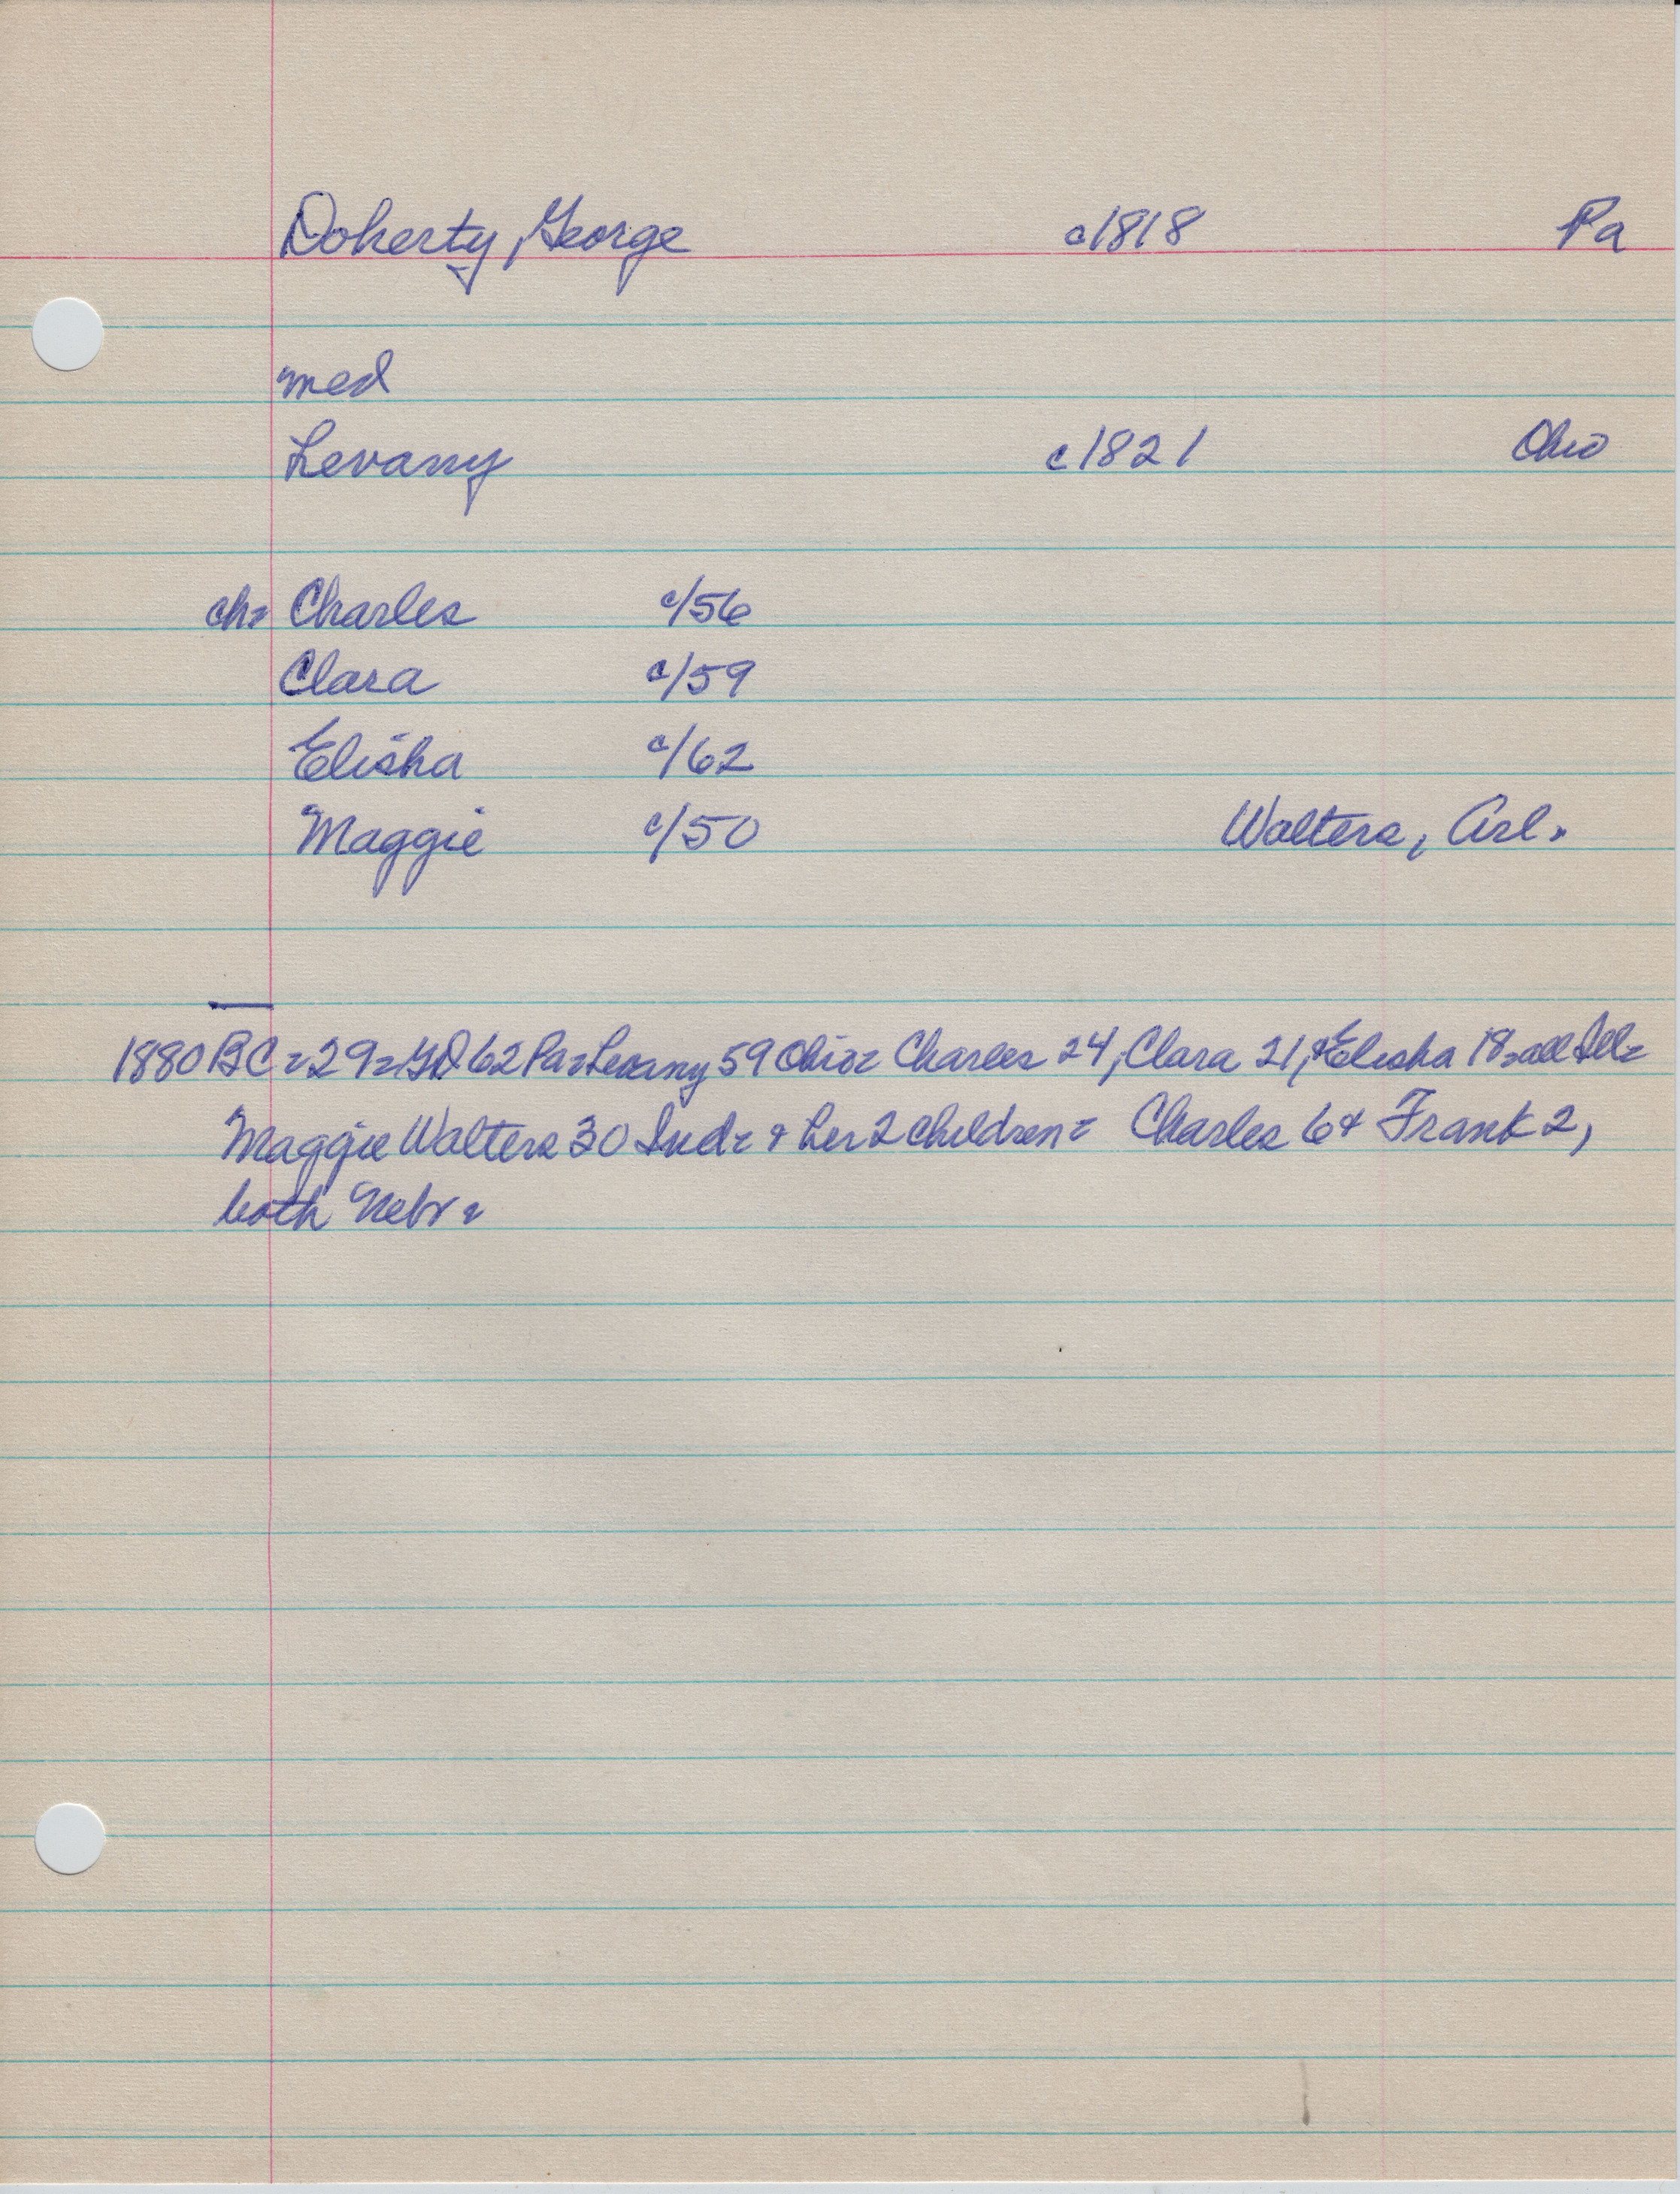 Doherty, George c1818 Pa
med
Levany c1821 Ohio
ch= Charles c/56
Clara c/59
Elisha c/62
Maggie c/50 Walters, Arl.
1880 BC=29=GD 62 Pa=Levany 59 Ohio= Charles 24, Clara 21, & Elisha 18=all Ill=
Maggie Walters 30 Ind= & her 2 children= Charles 6 & Frank 2,
both Nebr=